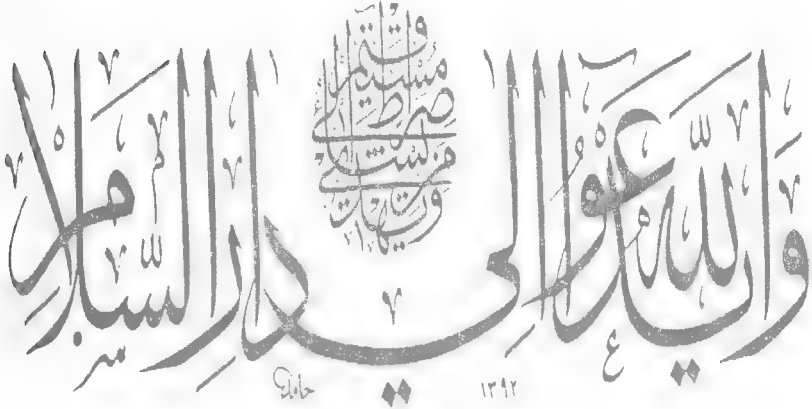 وَاللّٰهُ يَدْعُوا إِلَى دَارِ السَّلَامِ
وَيَهْدِي مَنْ يَشَاءُ إِلَى صِرَاطٍ مُسْتَقِيمٍ
حامد
١٣٩٢